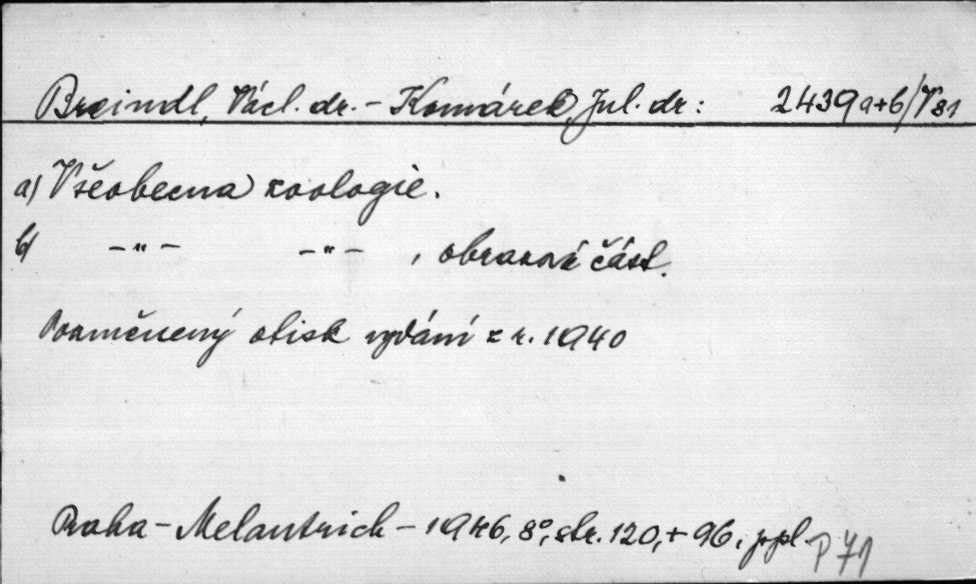 Breindl, Václ. dr. - Komárek, Jul. dr.: 2439a+b/V81
a) Všeobecna zoologie.
b) -"- -"- , obrazná část.
Pozměnený otisk vydání z r. 1940
Praha - Melantrich - 1946, 8°, str. 120, + 96,
P 71